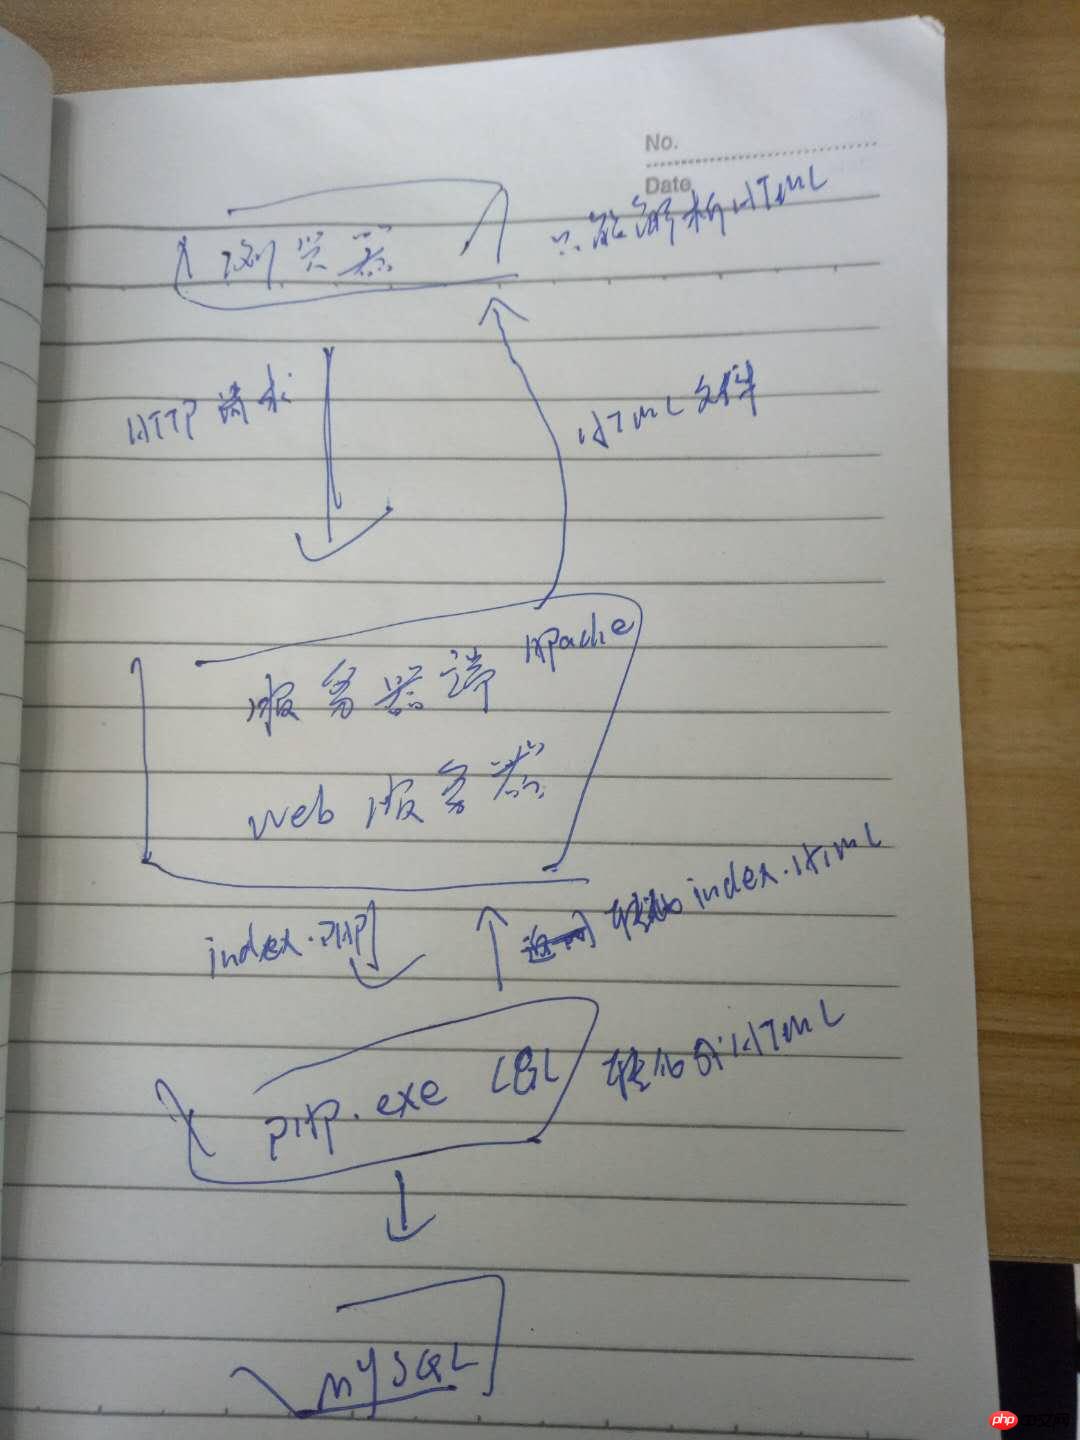 No.
Date
浏览器
只能解析HTML
HTTP请求
HTML文件
服务器端 Apache
web服务器
index.PHP
index.HTML
PHP.exe
HTML
MYSQL
php